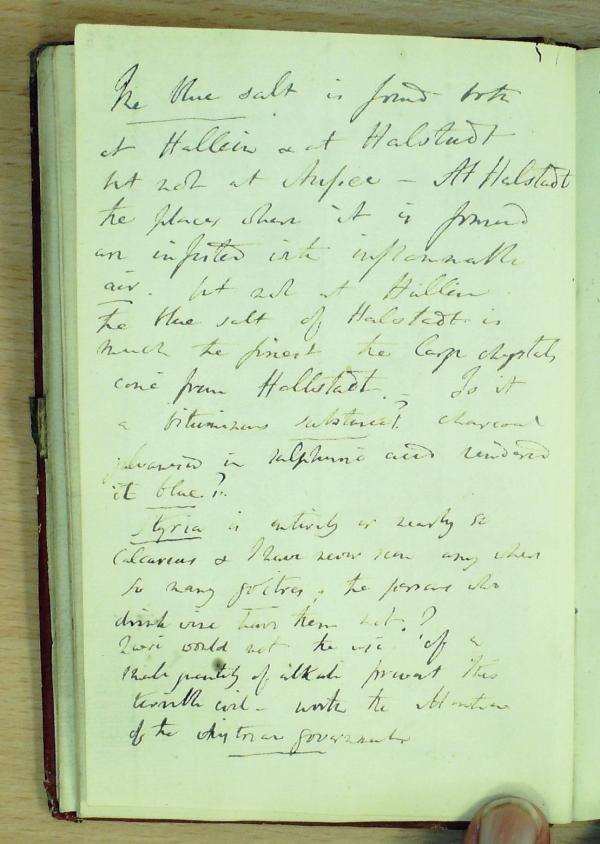 The blue salt is found both
at Hallein & at Halstadt
but not at Aussee - At Halstadt
the places where it is found
are infested with inflammable
air. but not at Hallein.
the blue salt of Halstadt is
much the finest the large chrystals
come from Hallstadt. - Is it
a bituminous substance? charcoal
galvanised in sulphuric acid rendered
it blue?.
Styria is entirely or nearly so
Calcareous & I have never seen any where
so many goitres; the persons who
drink wine have them not.?
Quere would not the use of a
small quantity of alkali prevent this
terrible evil - worth the attention
of the Austrian government